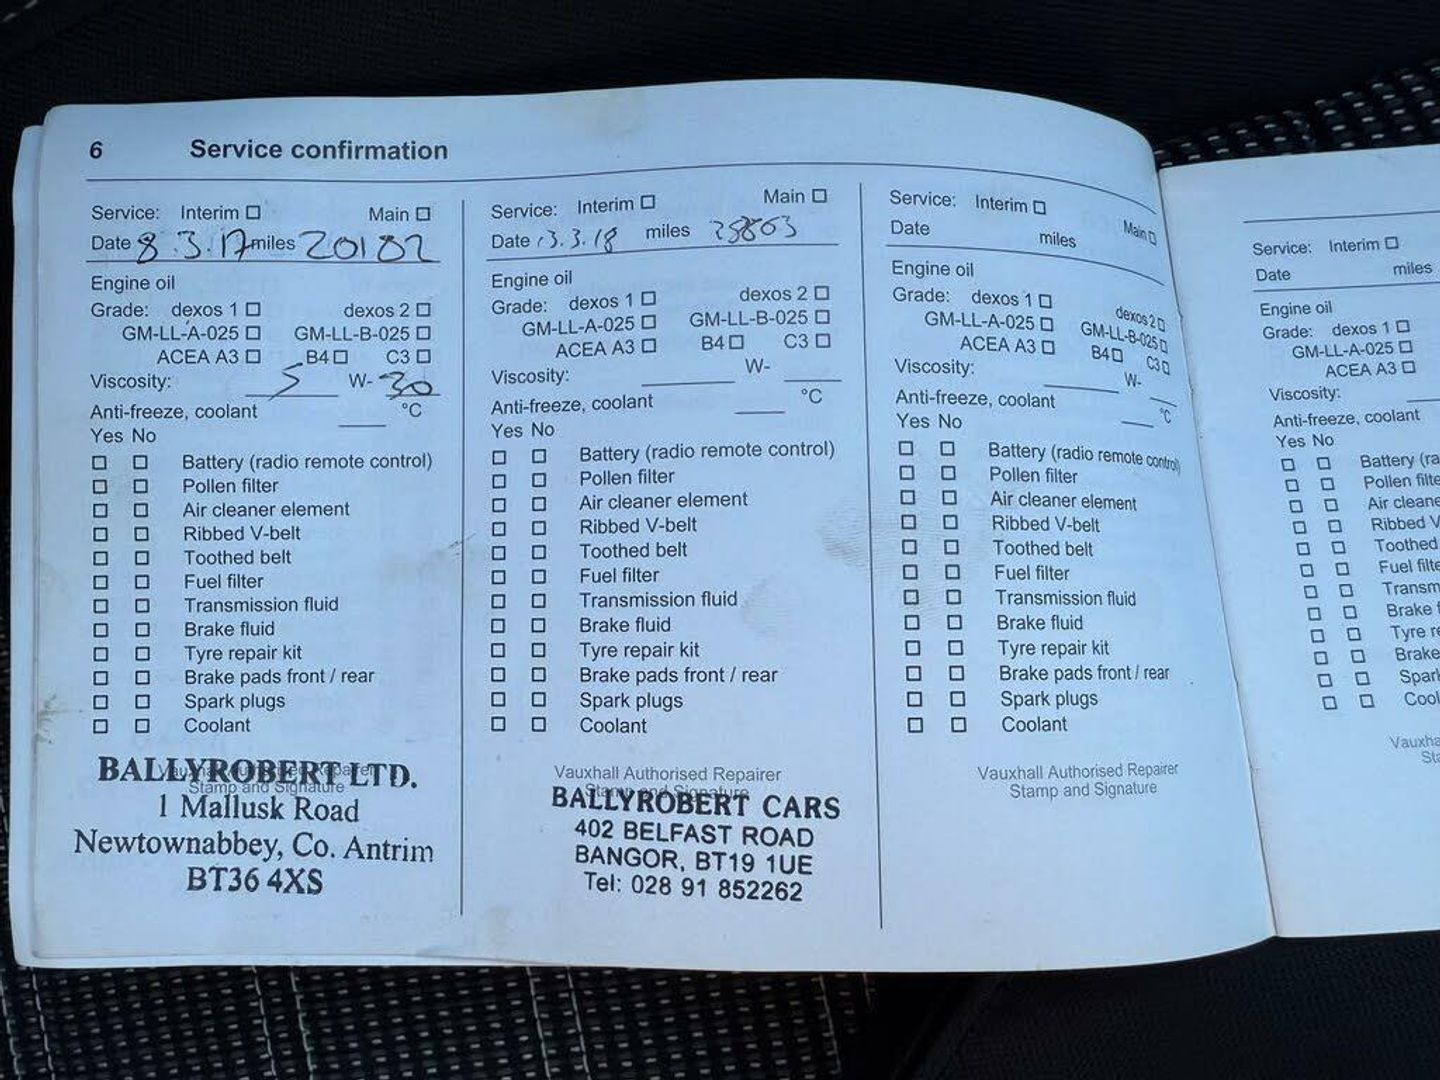 6 Service confirmation
Service: Interim Main
Date 8.3.17 miles 20182
Engine oil
Grade: dexos 1 dexos 2
GM-LL-A-025 GM-LL-B-025
ACEA A3 B4 C3
Viscosity: 5 W- 30
Anti-freeze, coolant °C
Yes No
Battery (radio remote control)
Pollen filter
Air cleaner element
Ribbed V-belt
Toothed belt
Fuel filter
Transmission fluid
Brake fluid
Tyre repair kit
Brake pads front / rear
Spark plugs
Coolant
Vauxhall Authorised Repairer
Stamp and Signature
BALLYROBERT LTD.
1 Mallusk Road
Newtownabbey, Co. Antrim
BT36 4XS
Service: Interim Main
Date 3.3.18 miles
Engine oil
Grade: dexos 1 dexos 2
GM-LL-A-025 GM-LL-B-025
ACEA A3 B4 C3
Viscosity: W-
Anti-freeze, coolant °C
Yes No
Battery (radio remote control)
Pollen filter
Air cleaner element
Ribbed V-belt
Toothed belt
Fuel filter
Transmission fluid
Brake fluid
Tyre repair kit
Brake pads front / rear
Spark plugs
Coolant
Vauxhall Authorised Repairer
Stamp and Signature
BALLYROBERT CARS
402 BELFAST ROAD
BANGOR, BT19 1UE
Tel: 028 91 852262
Service: Interim Main
Date miles
Engine oil
Grade: dexos 1 dexos 2
GM-LL-A-025 GM-LL-B-025
ACEA A3 B4 C3
Viscosity: W-
Anti-freeze, coolant °C
Yes No
Battery (radio remote control)
Pollen filter
Air cleaner element
Ribbed V-belt
Toothed belt
Fuel filter
Transmission fluid
Brake fluid
Tyre repair kit
Brake pads front / rear
Spark plugs
Coolant
Vauxhall Authorised Repairer
Stamp and Signature
Service: Interim
Date miles
Engine oil
Grade: dexos 1
GM-LL-A-025
ACEA A3
Viscosity:
Anti-freeze, coolant
Yes No
Battery (ra
Pollen filte
Air cleane
Ribbed V
Toothed
Fuel filte
Transm
Brake f
Tyre re
Brake
Spark
Cool
Vauxha
Sta